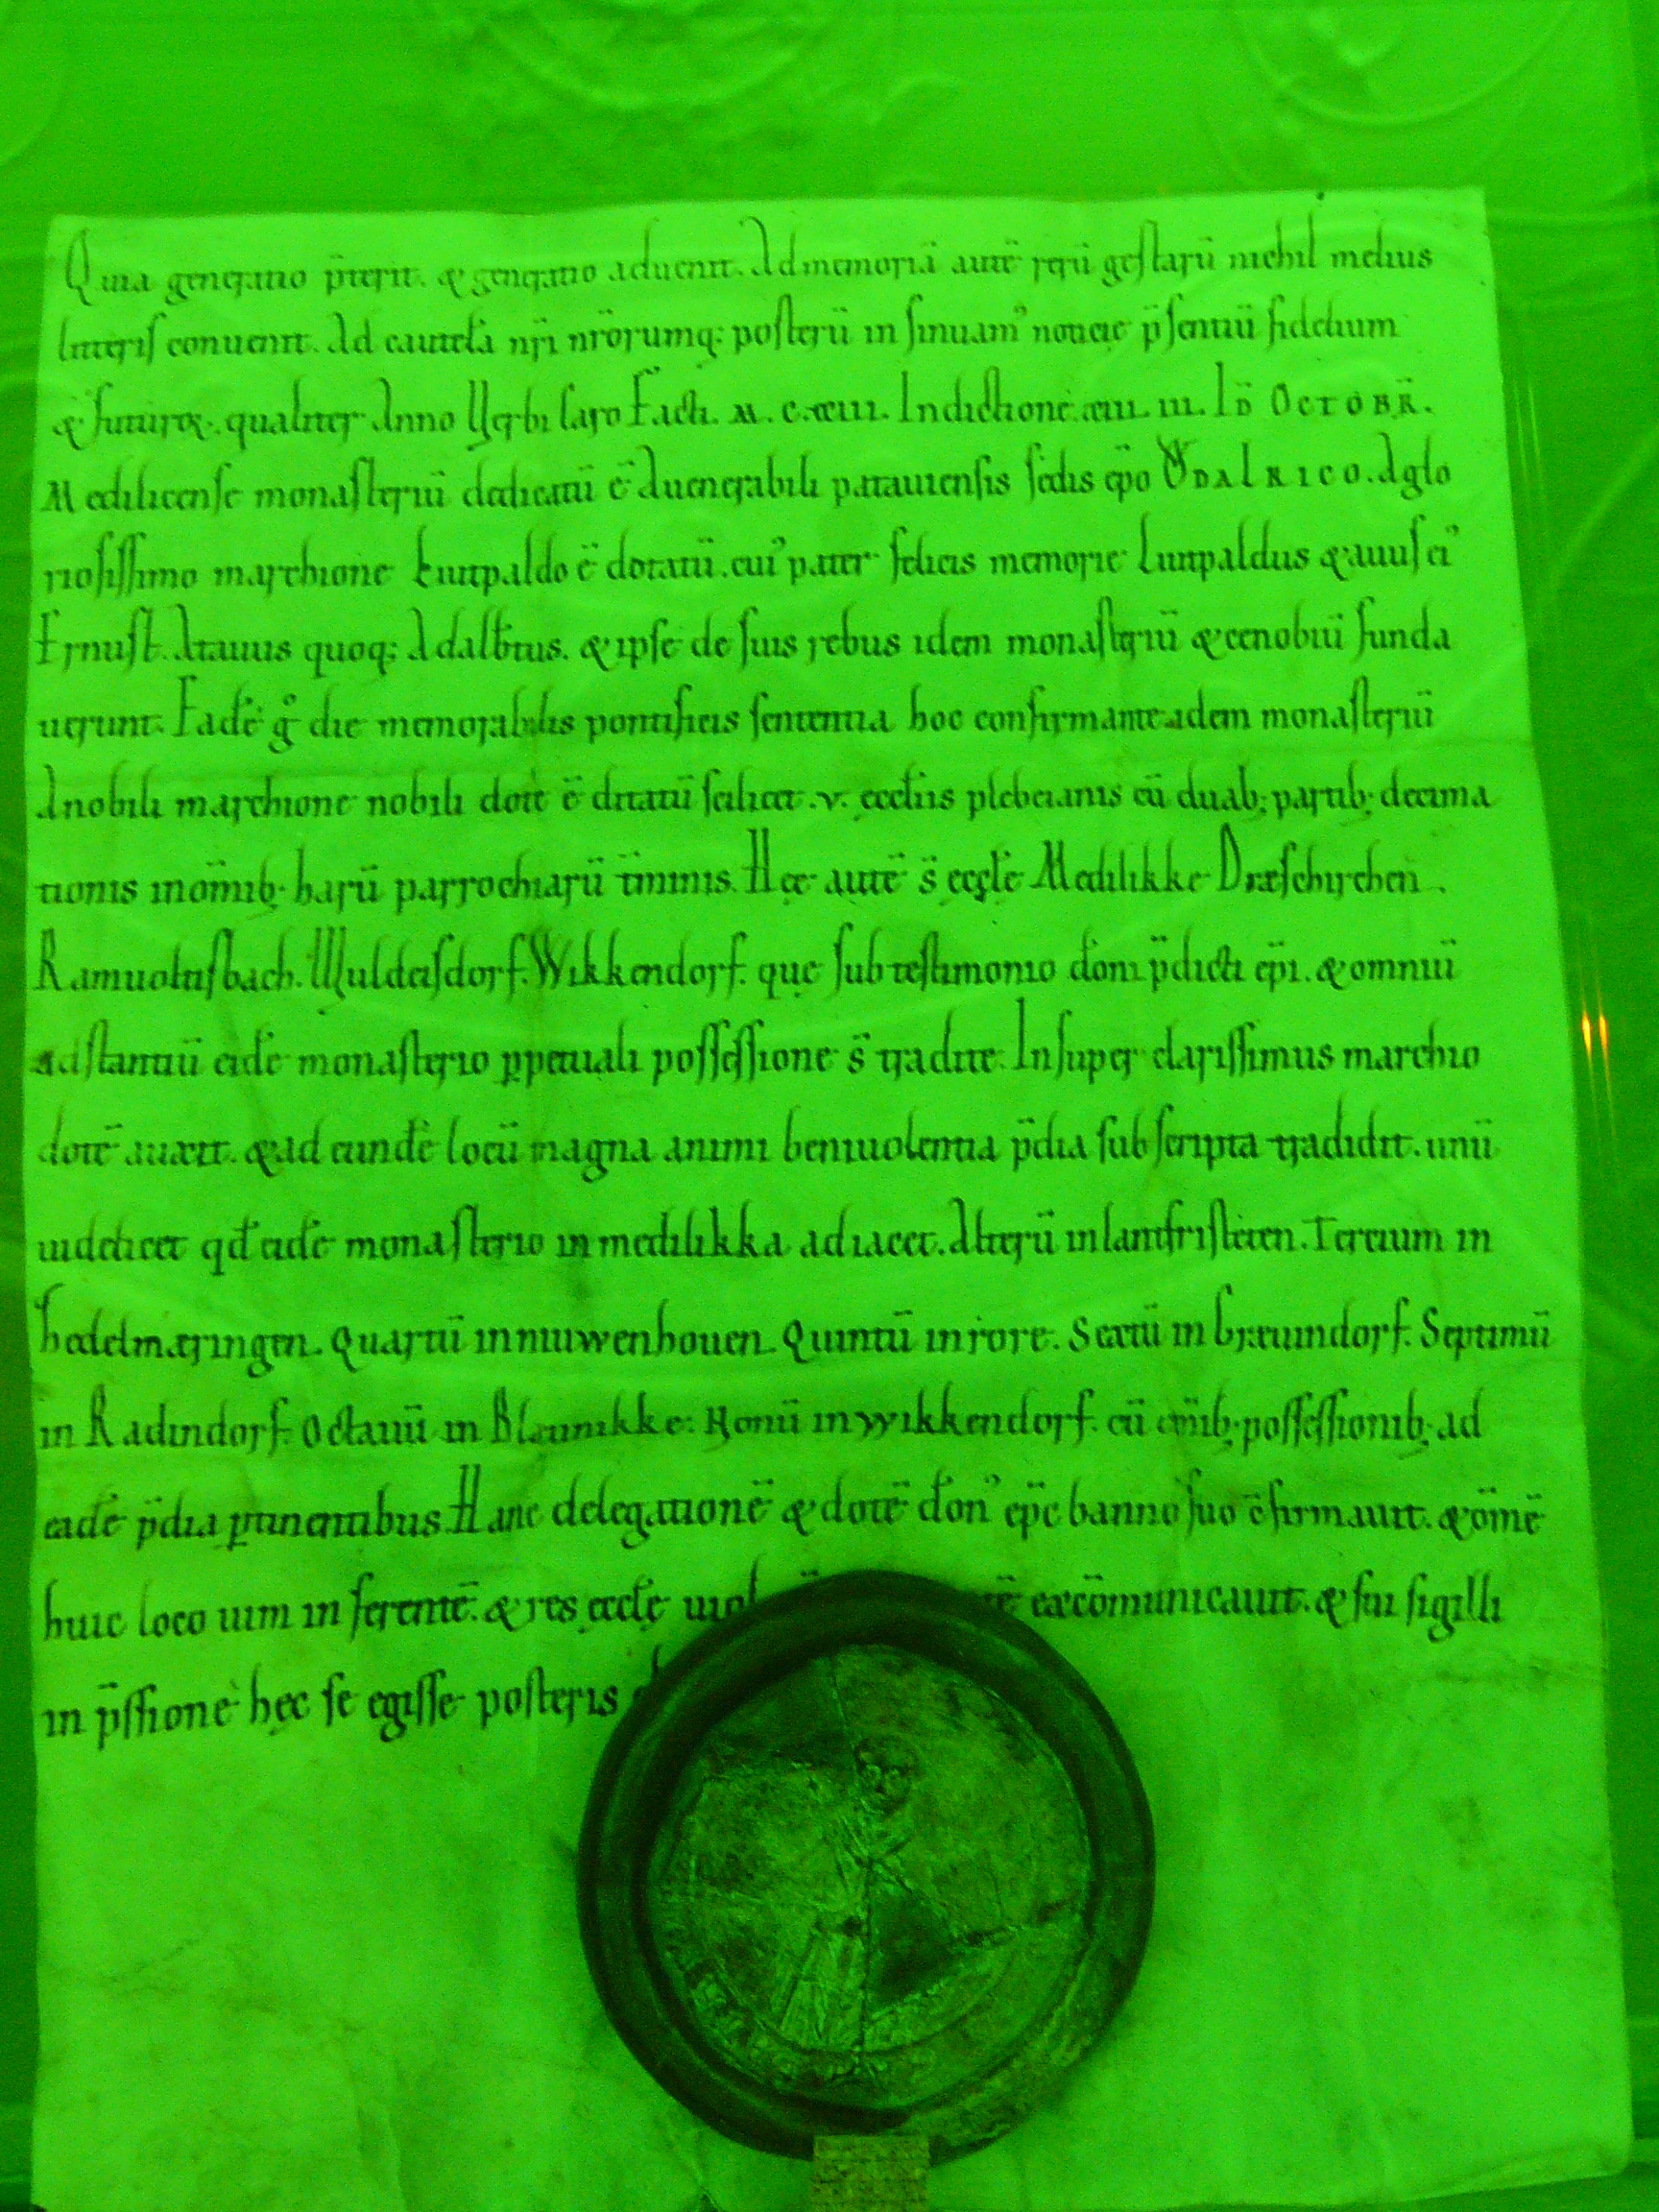 Quia generatio p̄terit. & generatio aduenit. Ad memoriā autē rerū gestarū nichil melius
litteris conuenit. Ad cautelā nr̄i nr̄orumq; posterū in sinuam᾿ noticie p̄sentiū fidelium
& futurorꝝ. qualiter Anno Verbi caro Facti. M. C. xiii. Indictione. III. ID OCTOBR̄.
Medilicense monasteriū dedicatū ē A uenerabili patauiensis sedis ep̄o VDALRICO. A glo
riosissimo marchione Liutpaldo ē dotatū. cui᾿ pater felicis memorie Liutpaldus & auus ei᾿
Ernust. Atauus quoq; Adalb̄tus. & ipse de suis rebus idem monasteriū & cenobiū funda
uerunt. Eadē gͦ die memorabilis pontificis sententia hoc confirmante idem monasteriū
A nobili marchione nobili dote ē ditatū scilicet .v. eccl̄iis plebeianis cū duab; partib; decima
tionis in om̄ib; harū parrochiarū t̄minis. Hęe autē s̄ ecclę̄ Medilikke Dræschirchen.
Ramuoltisbach. Wuldeisdorf. Wikkendorf. quę sub testimonio dōni p̄dicti ep̄i. & omniū
adstantiū eidē monasterio ꝑpetuali possessione s̄ tradite. Insuper clarissimus marchio
dotē auxit. & ad eundē locū magna animi beniuolentia p̄dia subscripta tradidit. unū
uidelicet qđ eidē monasterio in medilikka adiacet. Alterū in lantfristeten. Tercium in
hedelmaringen. Quartū in niuwenhouen. Quintū in rore. Sextū in braeuindorf. Septimū
in Radindorf. Octauū in Blæunikke. Nonū in wikkendorf. cū om̄ib; possessionib; ad
eadē p̄dia ꝑtinentibus. Hanc delegationē & dotē dōn᾿ ep̄c banno suo c̄firmauit. & om̄ē
huic loco uim inferentē. & res ecclę̄ excōmunicauit. & sui sigilli
in p̄ssionē hęc se egisse posteris